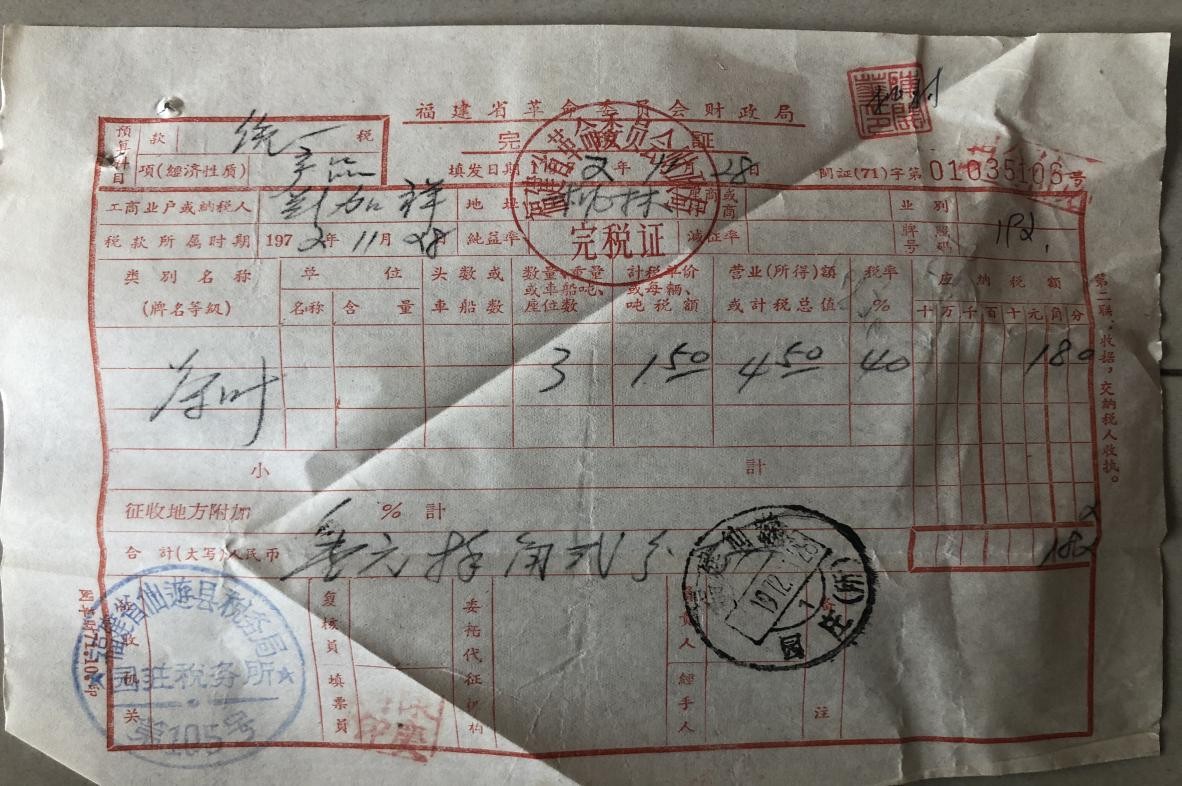 福建省革命委员会财政局
完税证
预算科目 款 统一 税
项(經济性质) 产品
填发日期 2年11月28日 閩証(71)字第01035106号
工商业户或納税人 彭加祥 地址 业别
税款所属时期 1972年11月28日 純益率 減征率 牌照号码 182.
类别名称(牌名等級) 单位 名称 含量 头数或車船数 数量、重量或車船吨、座位数 計税单价或每輛、吨税額 营业(所得)額或計税总值 税率% 应納税額 十万千百十元角分
茶叶 3 1.50 4.50 40 180
小計
征收地方附加 %計 2
合計(大写)人民币 壹元捌角弍分 182
征收机关 复核員 填票員 委托代征机构 負責人 經手人 备注
第二联：收据，交納税人收执。
完税证
福建省仙遊县税务局
园庄税务所
第105号
福建仙游
1972.11.28
园庄(所)